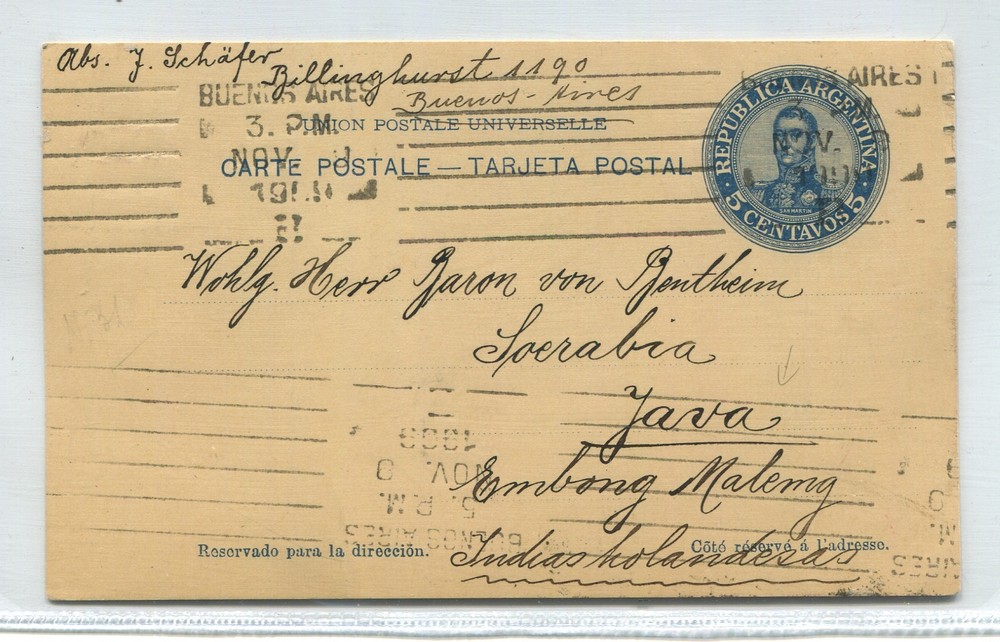 Abs. J. Schäfer
Billinghurst 1190
Buenos-Aires
BUENOS AIRES
3. P.M.
NOV.
UNION POSTALE UNIVERSELLE
CARTE POSTALE — TARJETA POSTAL
REPUBLICA ARGENTINA
SAN MARTIN
5 CENTAVOS 5
AIRES
NOV.
Wohlg. Herr Baron von Bentheim
Soerabia
Java
Embong Malemg
Indias holandesas
Reservado para la dirección.
Côté réservé à l'adresse.
BUENOS AIRES
5. P.M.
NOV. 9
1909